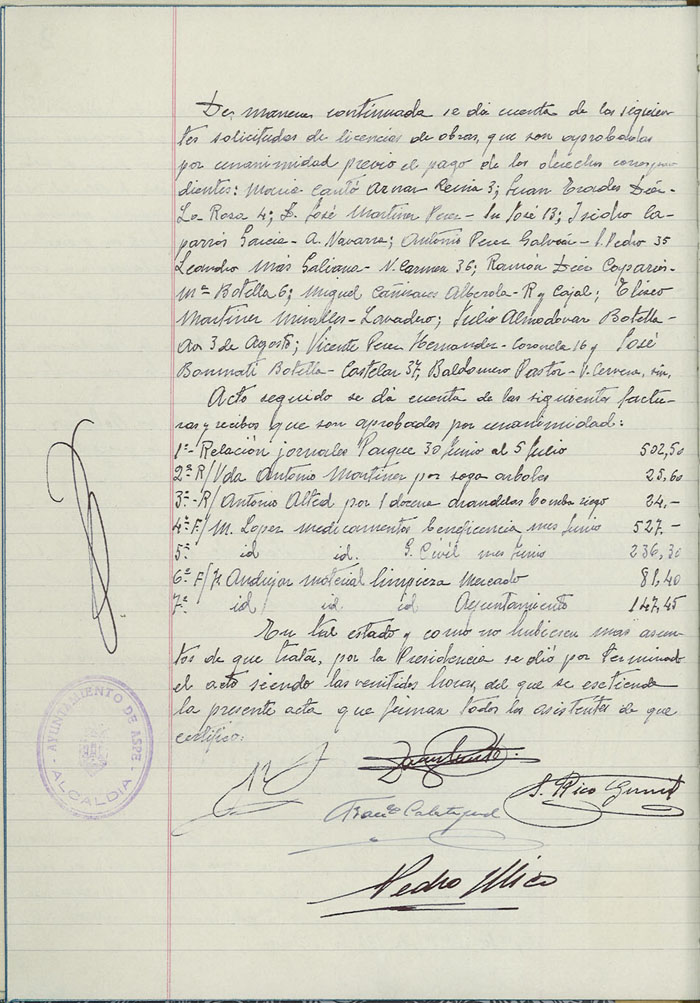 De manera continuada se da cuenta de las siguien-
tes solicitudes de licencias de obras, que son aprobadas
por unanimidad previo el pago de los derechos correspon
dientes: Maria Cantó Aznar Reina 3; Juan Prades Diéz-
La Rosa 4; D. José Martinez Perez - Sn José 13; Isidro Ca-
parrós Garcia - A. Navarra; Antonio Perez Galvañ - S. Pedro 35
Leandro Más Galvana - V. Carmen 36; Ramón Diéz Caparrós-
Mª Botella 6; Miguel Cañizares Alberola - R y Cajal; Eliseo
Martinez Miralles - Lavadero; Julio Almodovar Botella-
Av 3 de Agosto; Vicente Perez Hernandez - Coronela 16 y José
Bonmati Botella - Castelar 37, Baldomero Pastor - V. Cervera, s/n.
Acto seguido se da cuenta de las siguientes factu-
ras y recibos que son aprobadas por unanimidad:
1ª- Relación jornales Parque 30 Junio al 5 Julio 502,50
2ª R/ Vda Antonio Martinez por soga arboles 25,60
3ª- R/ Antonio Alted por 1 docena arandelas bomba riego 24.-
4ª F/ M. Lopez medicamentos beneficencia mes Junio 527.-
5ª id id. G. Civil mes Junio 236,30
6ª F/ Andujar material limpieza Mercado 81,40
7ª id id id Ayuntamiento 147,45
En tal estado y como no hubiesen mas asun-
tos de que tratar, por la Presidencia se dió por terminado
el acto siendo las veintidos horas, del que se extiende
la presente acta que firman todos los asistentes de que
certifico:
AYUNTAMIENTO DE ASPE
ALCALDIA
S. Rico
Calatayud
Pedro Mico